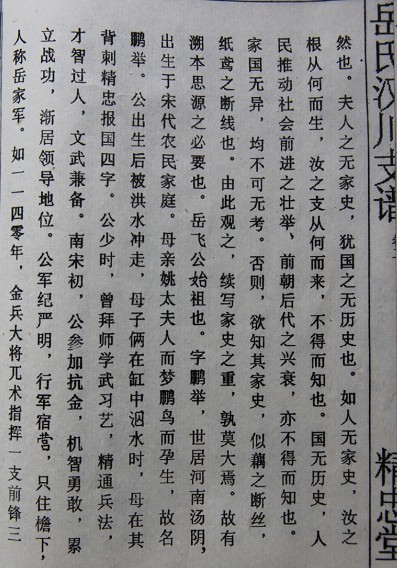 岳氏汉川支谱
精忠堂
然也。夫人之无家史，犹国之无历史也。如人无家史，汝之
根从何而生，汝之支从何而来，不得而知也。国无历史，人
民推动社会前进之壮举，前朝后代之兴衰，亦不得而知也。
家国无异，均不可无考。否则，欲知其家史，似藕之断丝，
纸鸢之断线也。由此观之，续写家史之重，孰莫大焉。故有
溯本思源之必要也。岳飞公始祖也。字鹏举，世居河南汤阴，
出生于宋代农民家庭。母亲姚太夫人而梦鹏鸟而孕生，故名
鹏举。公出生后被洪水冲走，母子俩在缸中泅水时，母在其
背刺精忠报国四字。公少时，曾拜师学武习艺，精通兵法，
才智过人，文武兼备。南宋初，公参加抗金，机智勇敢，累
立战功，渐居领导地位。公军纪严明，行军宿营，只住檐下，
人称岳家军。如一一四零年，金兵大将兀术指挥一支前锋三